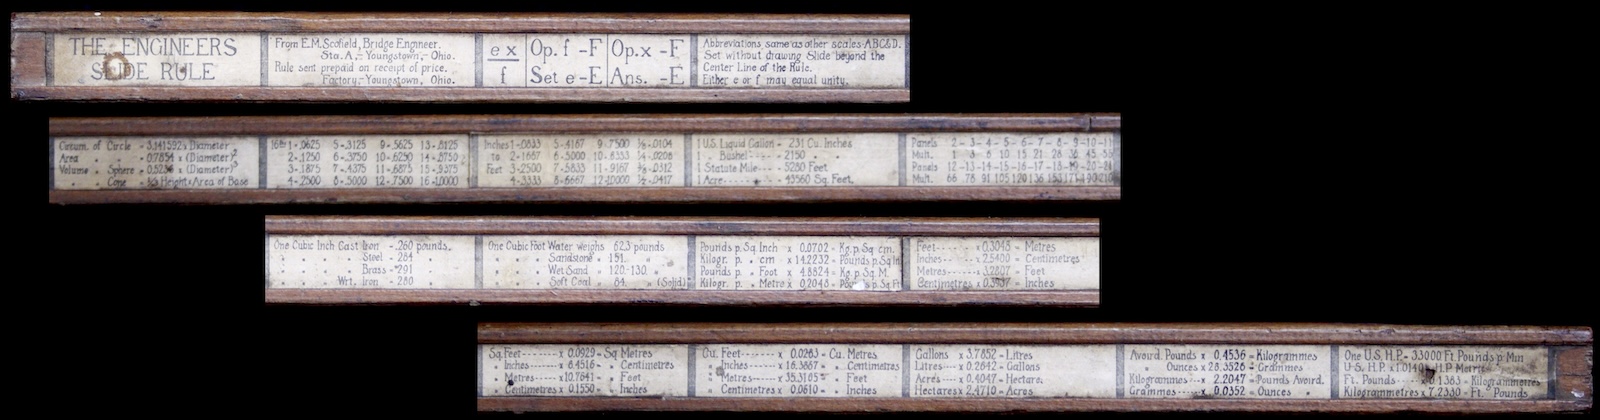 THE ENGINEERS
SLIDE RULE
From E.M. Scofield, Bridge Engineer.
Sta. A,- Youngstown,- Ohio.
Rule sent prepaid on receipt of price.
Factory,- Youngstown, Ohio.
e x
f
Op. f - F
Set e - E
Op. x - F
Ans. - E
Abbreviations same as other scales-ABC&D.
Set without drawing Slide beyond the
Center Line of the Rule.
Either e or f may equal unity.
Circum. of Circle = 3.141592 x Diameter
Area " " = 0.7854 x (Diameter)²
Volume " Sphere = 0.5236 x (Diameter)³
" " Cone = ⅓ Height x Area of Base
16ths 1-.0625 5-.3125 9-.5625 13-.8125
2-.1250 6-.3750 10-.6250 14-.8750
3-.1875 7-.4375 11-.6875 15-.9375
4-.2500 8-.5000 12-.7500 16-1.0000
Inches 1-.0833 5-.4167 9-.7500 ⅛-.0104
to 2-.1667 6-.5000 10-.8333 ¼-.0208
Feet 3-.2500 7-.5833 11-.9167 ⅜-.0312
4-.3333 8-.6667 12-1.0000 ½-.0417
1 U.S. Liquid Gallon - 231 Cu. Inches
1 " Bushel - - - - 2150 " "
1 Statute Mile - - - - 5280 Feet.
1 Acre - - - - - - 43560 Sq. Feet.
Panels 2-3-4-5-6-7-8-9-10-11
Mult. 1 3 6 10 15 21 28 36 45 55
Panels 12-13-14-15-16-17-18-19-20-21
Mult. 66 78 91 105 120 136 153 171 190 210
One Cubic Inch Cast Iron - .260 pounds.
" " " Steel - 284 "
" " " Brass - 291 "
" " " Wrt. Iron - .280 "
One Cubic Foot Water weighs 62.3 pounds
" " " Sandstone " 151. "
" " " Wet Sand " 120.-130. "
" " " Soft Coal " 84. " (Solid)
Pounds p. Sq. Inch x 0.0702 = Kg. p. Sq. cm.
Kilogr. p. " cm. x 14.2232 = Pounds p. Sq. In
Pounds p. " Foot x 4.8824 = Kg. p. Sq. M.
Kilogr. p. " Metre x 0.2048 = Pounds p. Sq. Ft
Feet - - - - - x 0.3048 = Metres
Inches - - - - x 2.5400 = Centimetres
Metres - - - - x 3.2807 = Feet
Centimetres x 0.3937 = Inches
Sq. Feet - - - - - x 0.0929 = Sq. Metres
" Inches - - - - x 6.4516 = " Centimetres
" Metres - - - - x 10.7641 = " Feet
" Centimetres x 0.1550 = " Inches
Cu. Feet - - - - - x 0.0283 = Cu. Metres
" Inches - - - - x 16.3867 = " Centimetres
" Metres - - - - x 35.3105 = " Feet
" Centimetres x 0.0610 = " Inches
Gallons x 3.7852 = Litres
Litres - - - x 0.2642 = Gallons
Acres - - - x 0.4047 = Hectares
Hectares x 2.4710 = Acres
Avoird. Pounds x 0.4536 = Kilogrammes
" Ounces x 28.3526 = Grammes
Kilogrammes - - - x 2.2047 = Pounds Avoird.
Grammes - - - - - x 0.0352 = Ounces "
One U.S. H.P. = 33000 Ft. Pounds p. Min
U.S. H.P. x 1.0140 = H.P. Metric
Ft. Pounds x 0.1383 = Kilogrammetres
Kilogrammetres x 7.2330 = Ft. Pounds